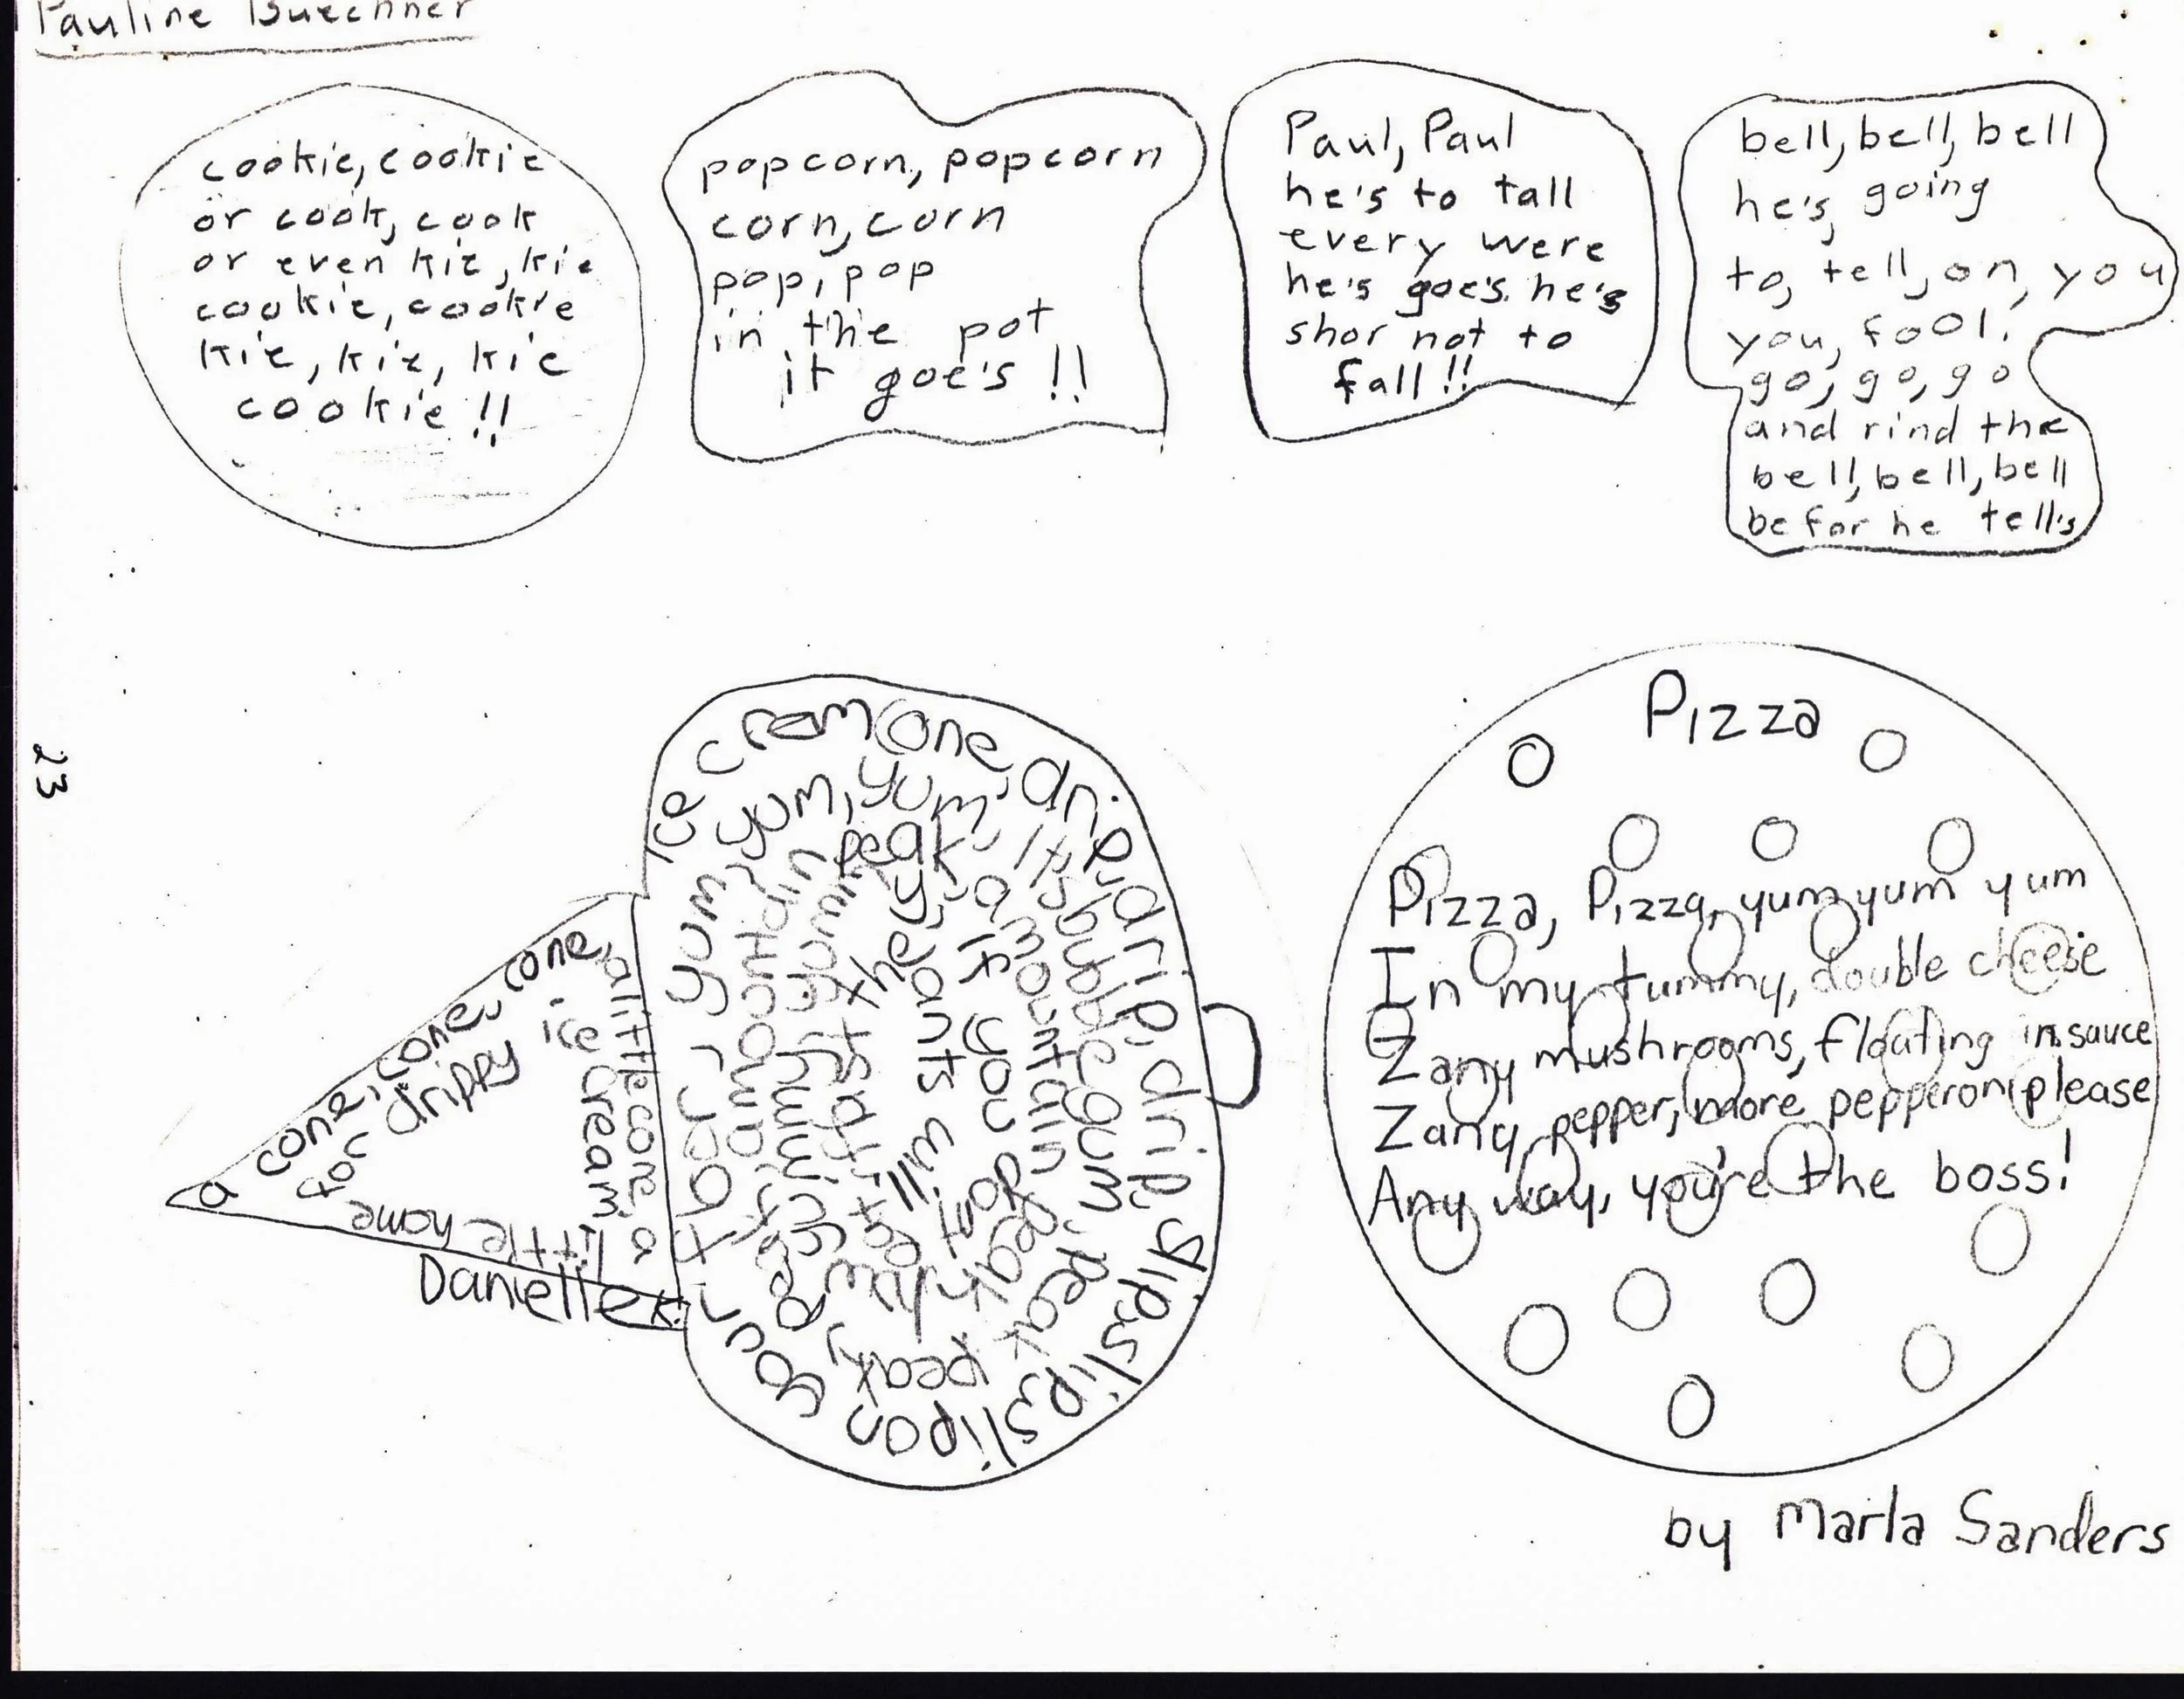 Pauline Buechner
cookie, cookie
or cook, cook
or even kie, kie
cookie, cookie
kie, kie, kie
cookie !!
popcorn, popcorn
corn, corn
pop, pop
in the pot
it goe's !!
Paul, Paul
he's to tall
every were
he's goe's. he's
shor not to
fall !!
bell, bell, bell
he's, going
to, tell, on, you
you, fool!
go, go, go
and rind the
bell, bell, bell
befor he tell's
23
Ice cream cone, drip, drip, drip, drip slip slip slip on your
yum, yum, yum, It's bubble gum, peak peak peaky
peak
a mountain
they
ants will
It you don't
a cone, cone, cone, cone,
a little cone, a
little home
for drippy ice cream
Danielle K.
Pizza
Pizza, Pizza, yum yum yum
In my tummy, double cheese
Zany mushrooms, floating in sauce
Zany pepper, more pepperoni please
Any way, you're the boss!
by Marla Sanders